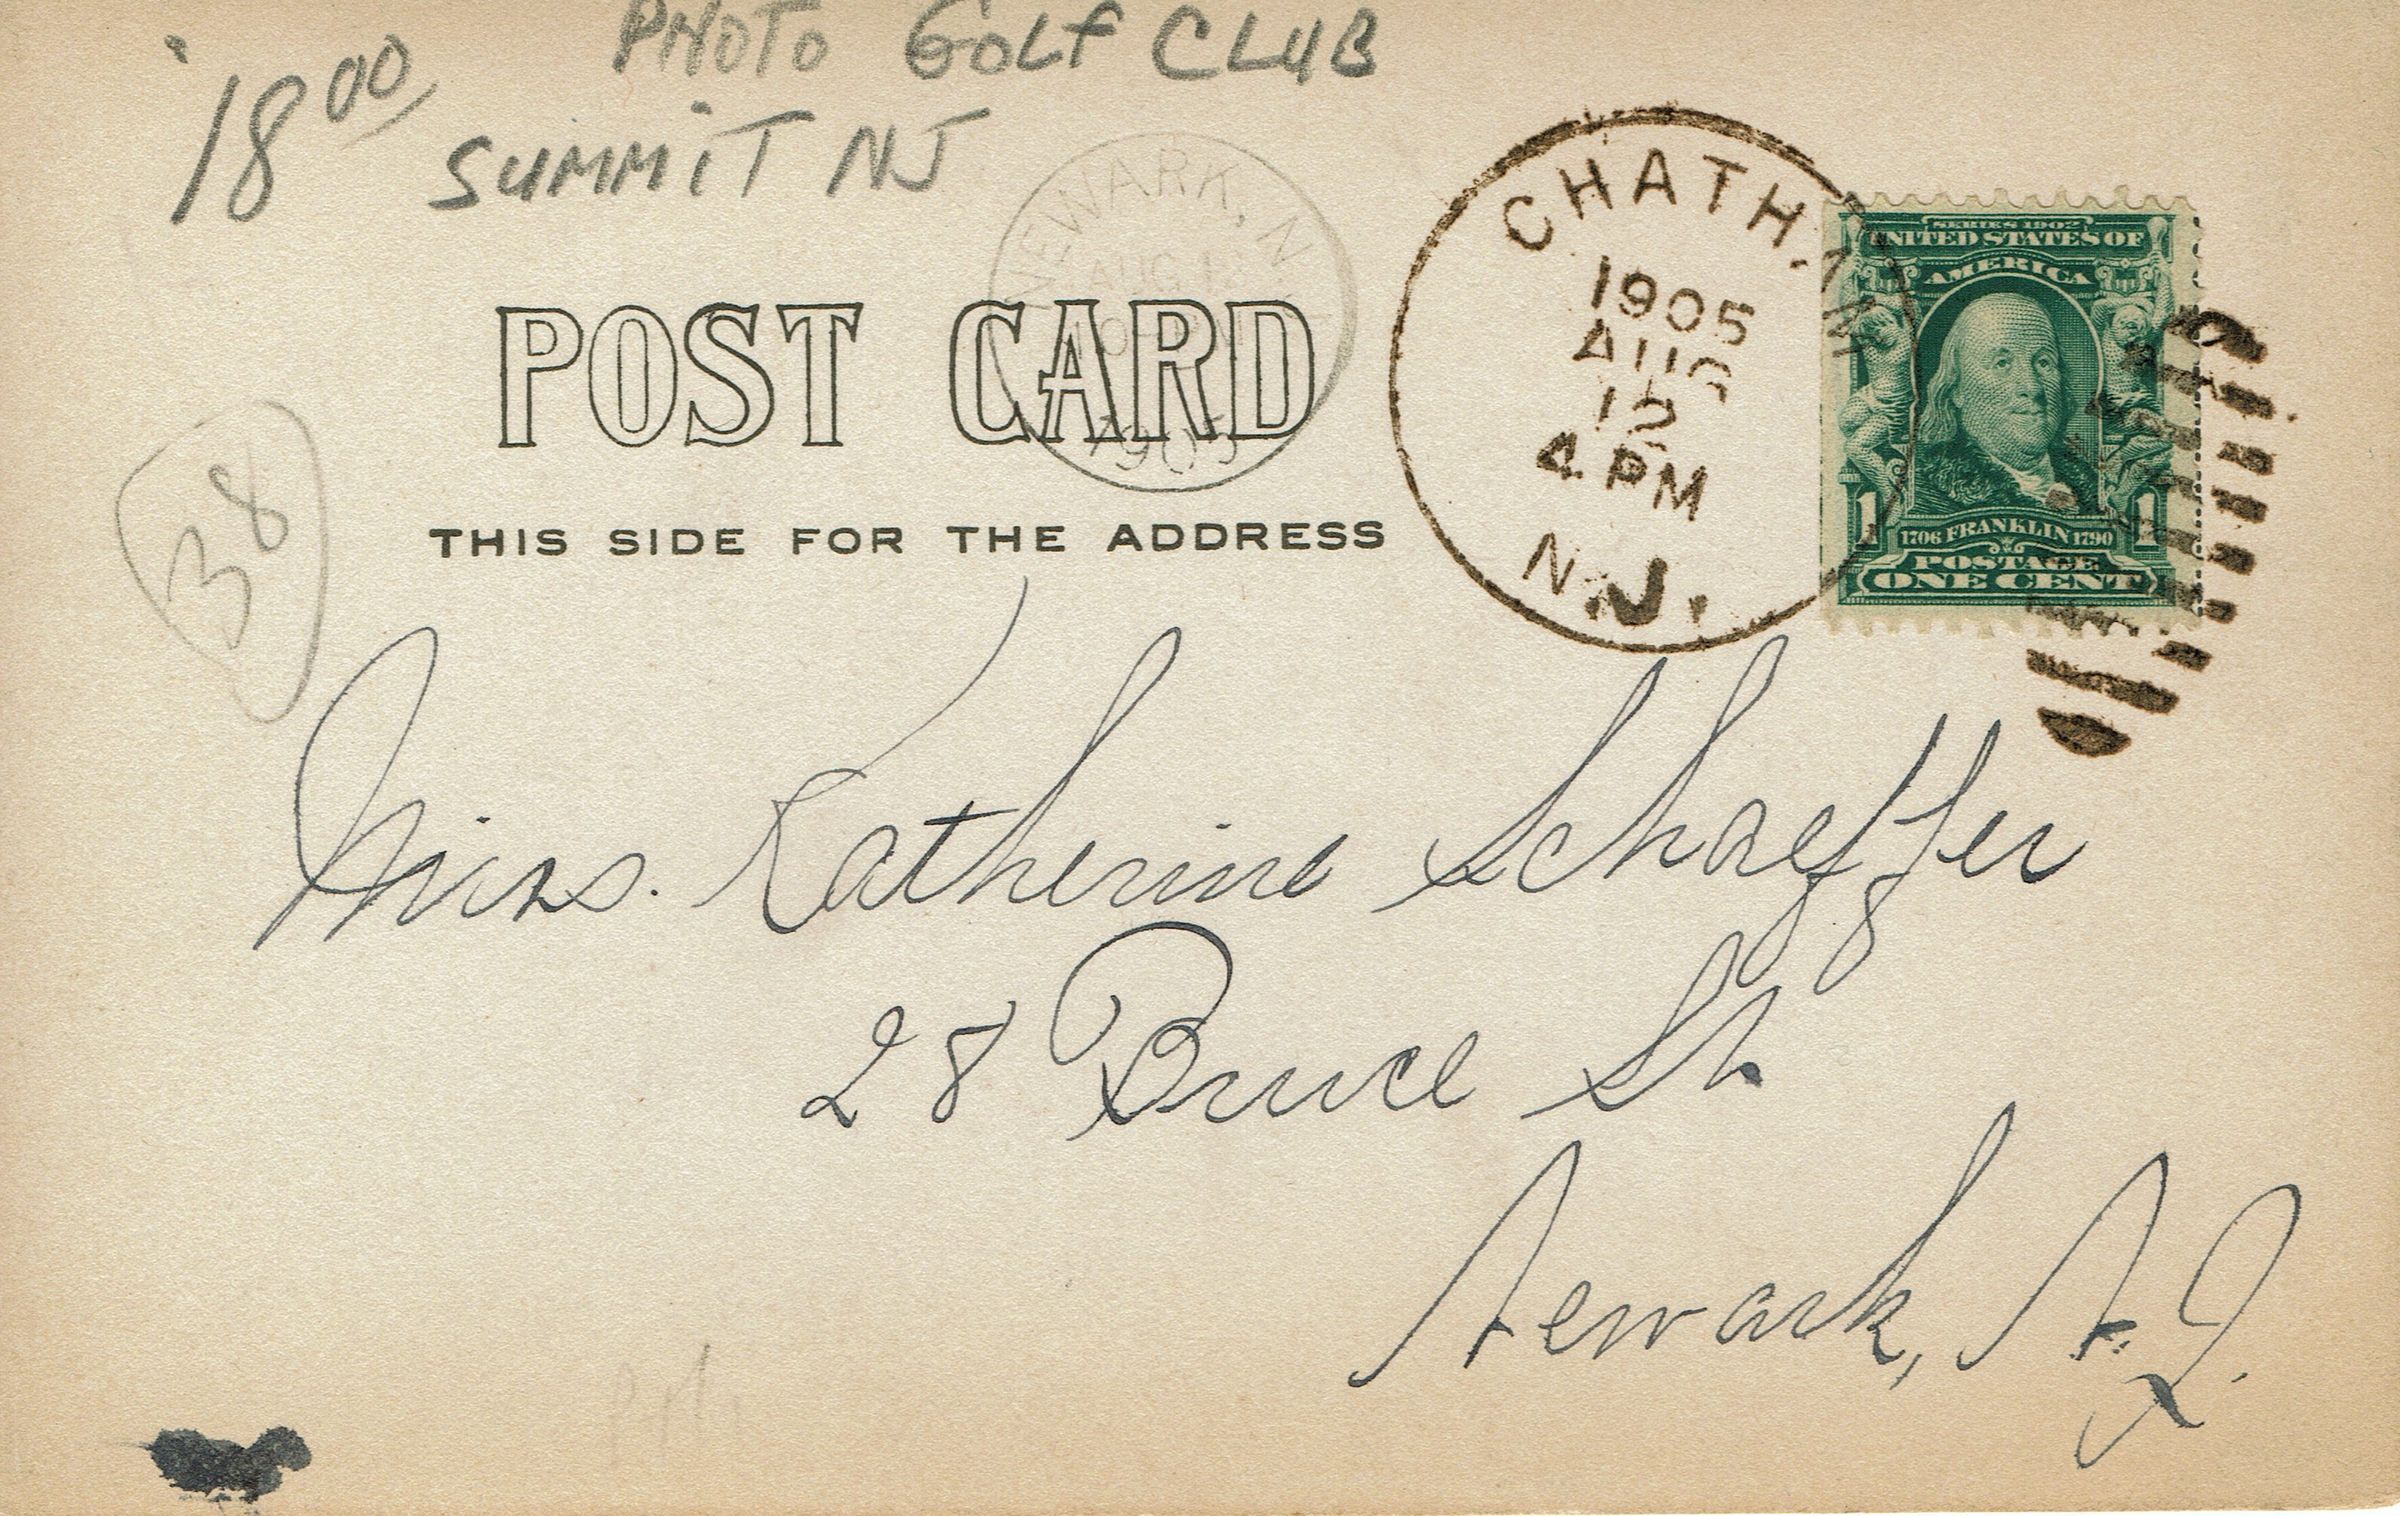 PHOTO GOLF CLUB
18 00
SUMMIT NJ
NEWARK, N
AUG
1905
POST CARD
THIS SIDE FOR THE ADDRESS
CHATHAM
1905
AUG
12
4 PM
N.J.
SERIES 1902
UNITED STATES OF
AMERICA
1 1706 FRANKLIN 1790 1
POSTAGE
ONE CENT
38
Miss. Katherine Schaeffer
28 Bruce St.
Newark, N.J.